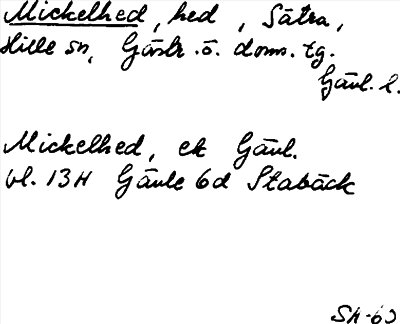 Mickelhed, hed, Sätra,
Hille sn, Gästr. ö. doms. tg.
Gävl. l.
Mickelhed, ek Gävl.
bl. 13H Gävle 6d Stabäck
SH-63